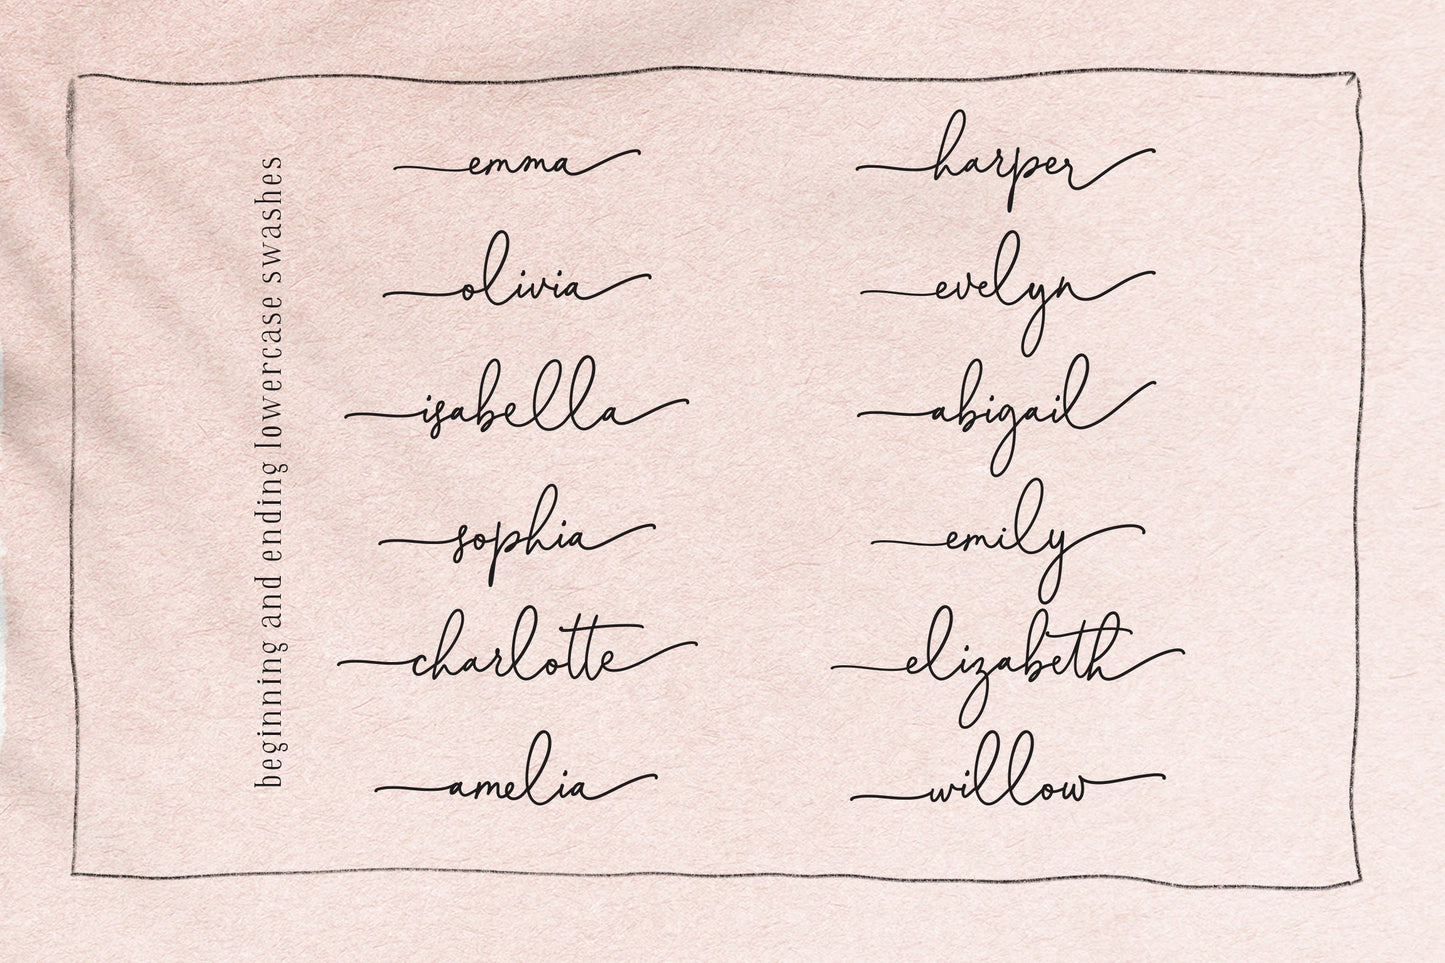 beginning and ending lowercase swashes
emma
olivia
isabella
sophia
charlotte
amelia
harper
evelyn
abigail
emily
elizabeth
willow